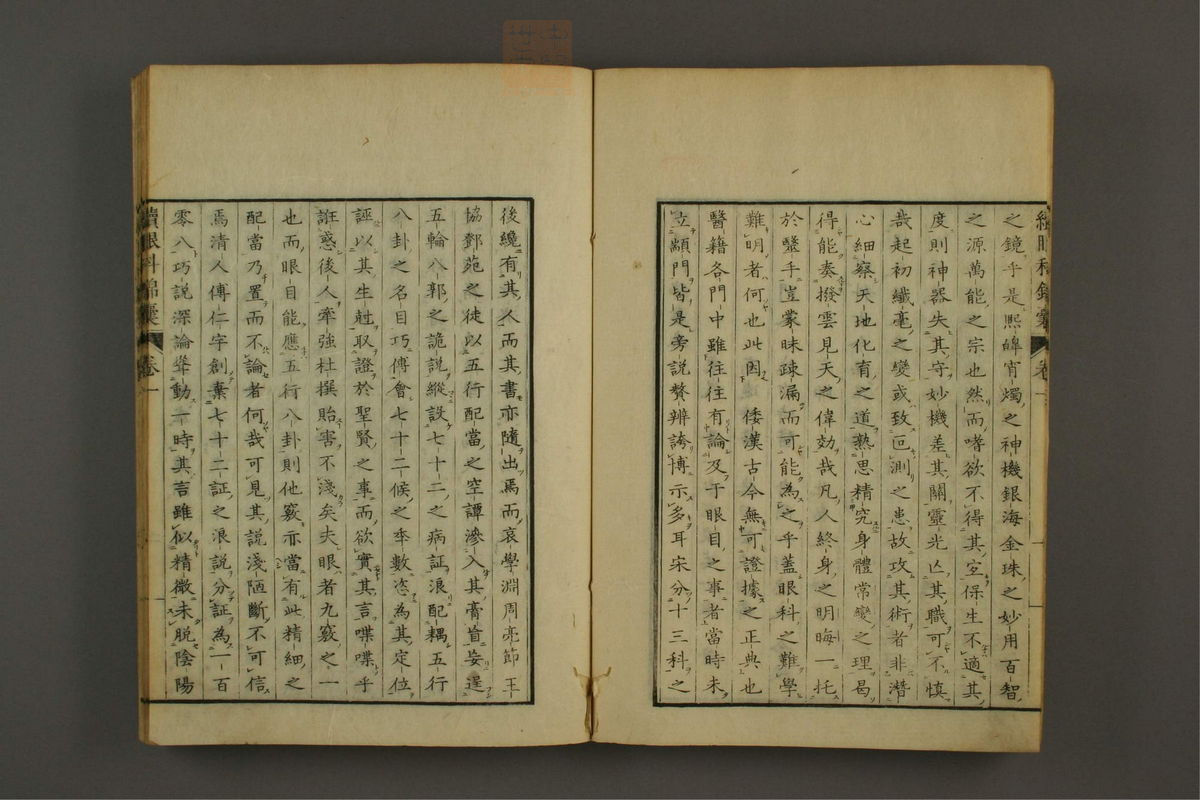 續眼科錦囊 卷一
之鏡乎是熙皥宵燭之神機銀海金珠之妙用百智
之源萬能之宗也然而嗜欲不得其宜保生不適其
度則神器失其守妙機差其關靈光亾其職可不慎
哉起初纎毫之變或致叵測之患故攻其術者非潛
心細察天地化育之道熟思精究身體常變之理曷
得能奏撥雲見天之偉効哉凡人終身之明晦一托
於毉手豈蒙昧疎漏而可能為之乎蓋眼科之難學
難明者何也此因倭漢古今無可證據之正典也
醫籍各門中雖往往有論及于眼目之事者當時未
立顓門皆是旁說贅辨誇博示多耳宋分十三科之
後纔有其人而其書亦隨出焉而哀學淵周亮節王
協鄧苑之徒以五行配當之空譚滲入其膏肓妄逞
五輪八郭之詭説縱設七十二之病証浪配耦五行
八卦之名目巧傅會七十二候之率數恣為其定位
誣以其生尅取證於聖賢之事而欲實其言喋喋乎
誑惑後人牽強杜撰貽害不淺矣夫眼者九竅之一
也而眼目能應五行八卦則他竅亦當有此精細之
配當乃置而不論者何哉可見其説淺陋斷不可信
焉清人傅仁宇創棄七十二証之浪說分証為一百
零八巧説深論聳動一時其言雖似精微未脱陰陽
續眼科錦囊 卷一